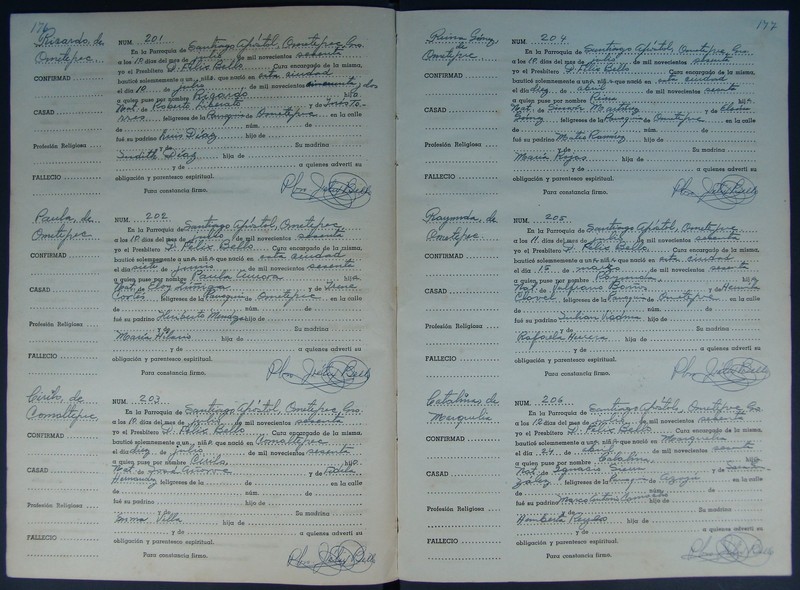 176
Rizardo, de
Ometepec
CONFIRMAD
CASAD
Profesión Religiosa
FALLECIO
NUM. 201
En la Parroquia de Santiago Apóstol, Ometepec, Gro.
a los 10 días del mes de julio de mil novecientos sesenta
yo el Presbítero J. Félix Bello Cura encargado de la misma,
bauticé solemnemente a un niñ que nació en esta ciudad
el día 10 de julio de mil novecientos cincuenta y dos
a quien puse por nombre Rizardo hijo
Nat. de Roberto Liberato y de Inés To-
rres feligreses de la Parroquia de Ometepec en la calle
de núm. de
fué su padrino Luis Díaz hijo de
y de Su madrina
Judith Díaz hija de
y de a quienes advertí su
obligación y parentesco espiritual.
Para constancia firmo.
Pbro. J. Félix Bello
Paula, de
Ometepec
CONFIRMAD
CASAD
Profesión Religiosa
FALLECIO
NUM. 202
En la Parroquia de Santiago Apóstol, Ometepec
a los 10 días del mes de julio de mil novecientos sesenta
yo el Presbítero J. Félix Bello Cura encargado de la misma,
bauticé solemnemente a un niñ que nació en esta ciudad
el día siete de junio de mil novecientos sesenta
a quien puse por nombre Paula Aurora hija
Nat. de y de Irene
Cortés feligreses de la Parroquia de Ometepec en la calle
de núm. de
fué su padrino Heriberto Mendez hijo de
y de Su madrina
María Hilario hija de
y de a quienes advertí su
obligación y parentesco espiritual.
Para constancia firmo.
Pbro. J. Félix Bello
Cirilo, de
Comaltepec
CONFIRMAD
CASAD
Profesión Religiosa
FALLECIO
NUM. 203
En la Parroquia de Santiago Apóstol, Ometepec, Gro.
a los 10 días del mes de julio de mil novecientos sesenta
yo el Presbítero J. Félix Bello Cura encargado de la misma,
bauticé solemnemente a un niñ que nació en Comaltepec
el día diez de julio de mil novecientos sesenta
a quien puse por nombre Cirilo, hijo
Nat. de y de Adela
Hernandez feligreses de la de en la calle
de núm. de
fué su padrino hijo de
y de Su madrina
Emma Villa hija de
y de a quienes advertí su
obligación y parentesco espiritual.
Para constancia firmo.
Pbro. J. Félix Bello
177
Reina Gómez,
de
Ometepec
CONFIRMAD
CASAD
Profesión Religiosa
FALLECIO
NUM. 204
En la Parroquia de Santiago Apóstol, Ometepec, Gro.
a los 10 días del mes de julio de mil novecientos sesenta
yo el Presbítero J. Félix Bello Cura encargado de la misma,
bauticé solemnemente a un niñ que nació en esta ciudad
el día diez de abril de mil novecientos sesenta
a quien puse por nombre Reina hija
Nat. de Martínez y de
Gómez feligreses de la Parroquia de Ometepec en la calle
de núm. de
fué su padrino Mateo Ramírez hijo de
y de Su madrina
María Rojas hija de
y de a quienes advertí su
obligación y parentesco espiritual.
Para constancia firmo.
Pbro. J. Félix Bello
Raymunda, de
Ometepec
CONFIRMAD
CASAD
Profesión Religiosa
FALLECIO
NUM. 205
En la Parroquia de Santiago Apóstol, Ometepec
a los 11 días del mes de julio de mil novecientos sesenta
yo el Presbítero J. Félix Bello Cura encargado de la misma,
bauticé solemnemente a un niñ que nació en esta ciudad
el día 15 de marzo de mil novecientos sesenta
a quien puse por nombre Raymunda, hija
Nat. de y de
Clavel feligreses de la Parroquia de Ometepec en la calle
de núm. de
fué su padrino Julian hijo de
y de Su madrina
Rafaela Herrera hija de
y de a quienes advertí su
obligación y parentesco espiritual.
Para constancia firmo.
Pbro. J. Félix Bello
Catalina, de
CONFIRMAD
CASAD
Profesión Religiosa
FALLECIO
NUM. 206
En la Parroquia de Santiago Apóstol, Ometepec, Gro.
a los 12 días del mes de julio de mil novecientos sesenta
yo el Presbítero J. Félix Bello Cura encargado de la misma,
bauticé solemnemente a un niñ que nació en
el día 24 de abril de mil novecientos sesenta
a quien puse por nombre Catalina, hija
Nat. de Ignacio y de
feligreses de la Parroquia de Azoyú en la calle
de núm. de
fué su padrino hijo de
y de Su madrina
Heriberta hija de
y de a quienes advertí su
obligación y parentesco espiritual.
Para constancia firmo.
Pbro. J. Félix Bello